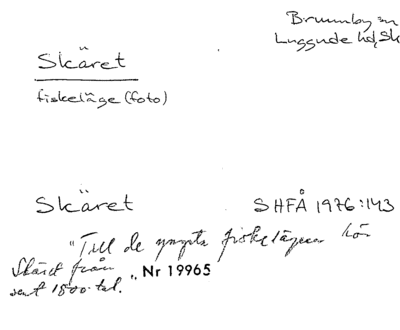 Brunnby sn
Luggude hd, Sk
Skäret
fiskeläge (foto)
Skäret SHFÅ 1976:143
"Till de yngsta fiskelägena hör
Skäret från
sent 1500-tal. " Nr 19965